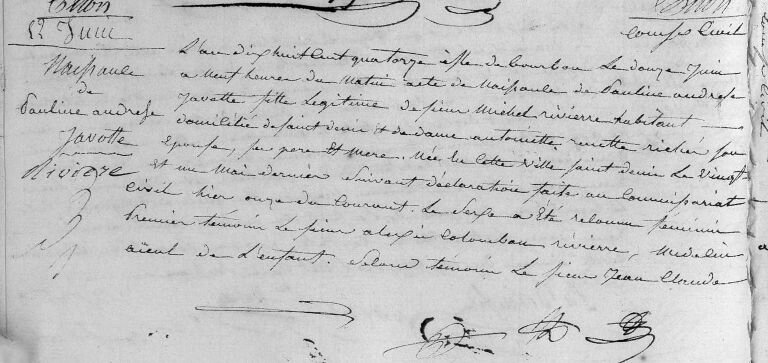 12 Juin
Naissance
de
Pauline andrese
Javotte
Rivierre
Civil
L'an dix huit cent quatorze isle de Bourbon Le douze Juin
a Neuf heures du Matin acte de Naissance de Pauline andrese
Javotte fille Legitime de sieur Michel rivierre habitant
domicilié de saint denis & de dame antoinette richer son
Epouse, ses pere et Mere. Née en Cette Ville saint denis Le Vingt
et un Mai dernier suivant déclaration faite au Commissariat
civil hier onze du Courant. Le Sexe a Eté reconnu feminin
Premier temoin Le sieur alexis Colomban rivierre, Medecin
aïeul de L'enfant. Second temoin Le sieur Jean Claude